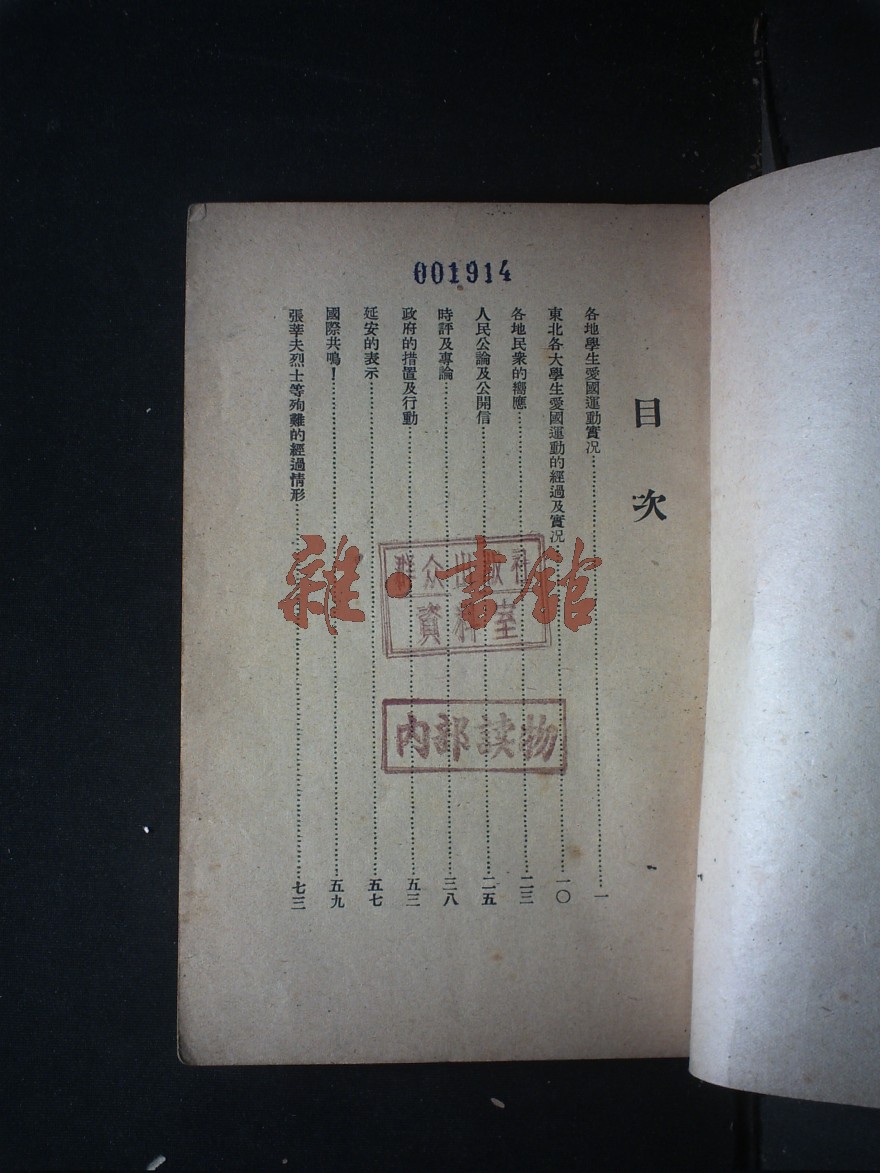 001914
目次
各地學生愛國運動實况⋯⋯⋯⋯一
東北各大學生愛國運動的經過及實况⋯⋯⋯⋯一〇
各地民衆的嚮應⋯⋯⋯⋯二三
人民公論及公開信⋯⋯⋯⋯二五
時評及專論⋯⋯⋯⋯三八
政府的措置及行動⋯⋯⋯⋯五三
延安的表示⋯⋯⋯⋯五七
國際共鳴！⋯⋯⋯⋯五九
張莘夫烈士等殉難的經過情形⋯⋯⋯⋯七三
群众出版社
資料室
内部读物
雜·書館